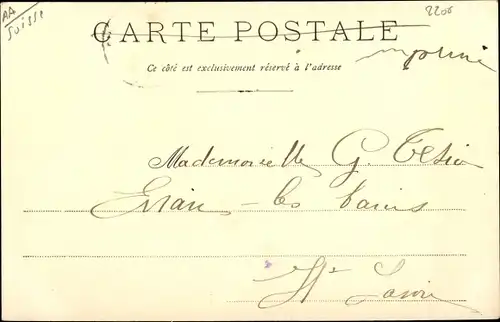 AA
Suisse
2206
CARTE POSTALE
imprimé
Ce côté est exclusivement réservé à l'adresse
Mademoiselle G.
Evian - les bains
Hte Savoie